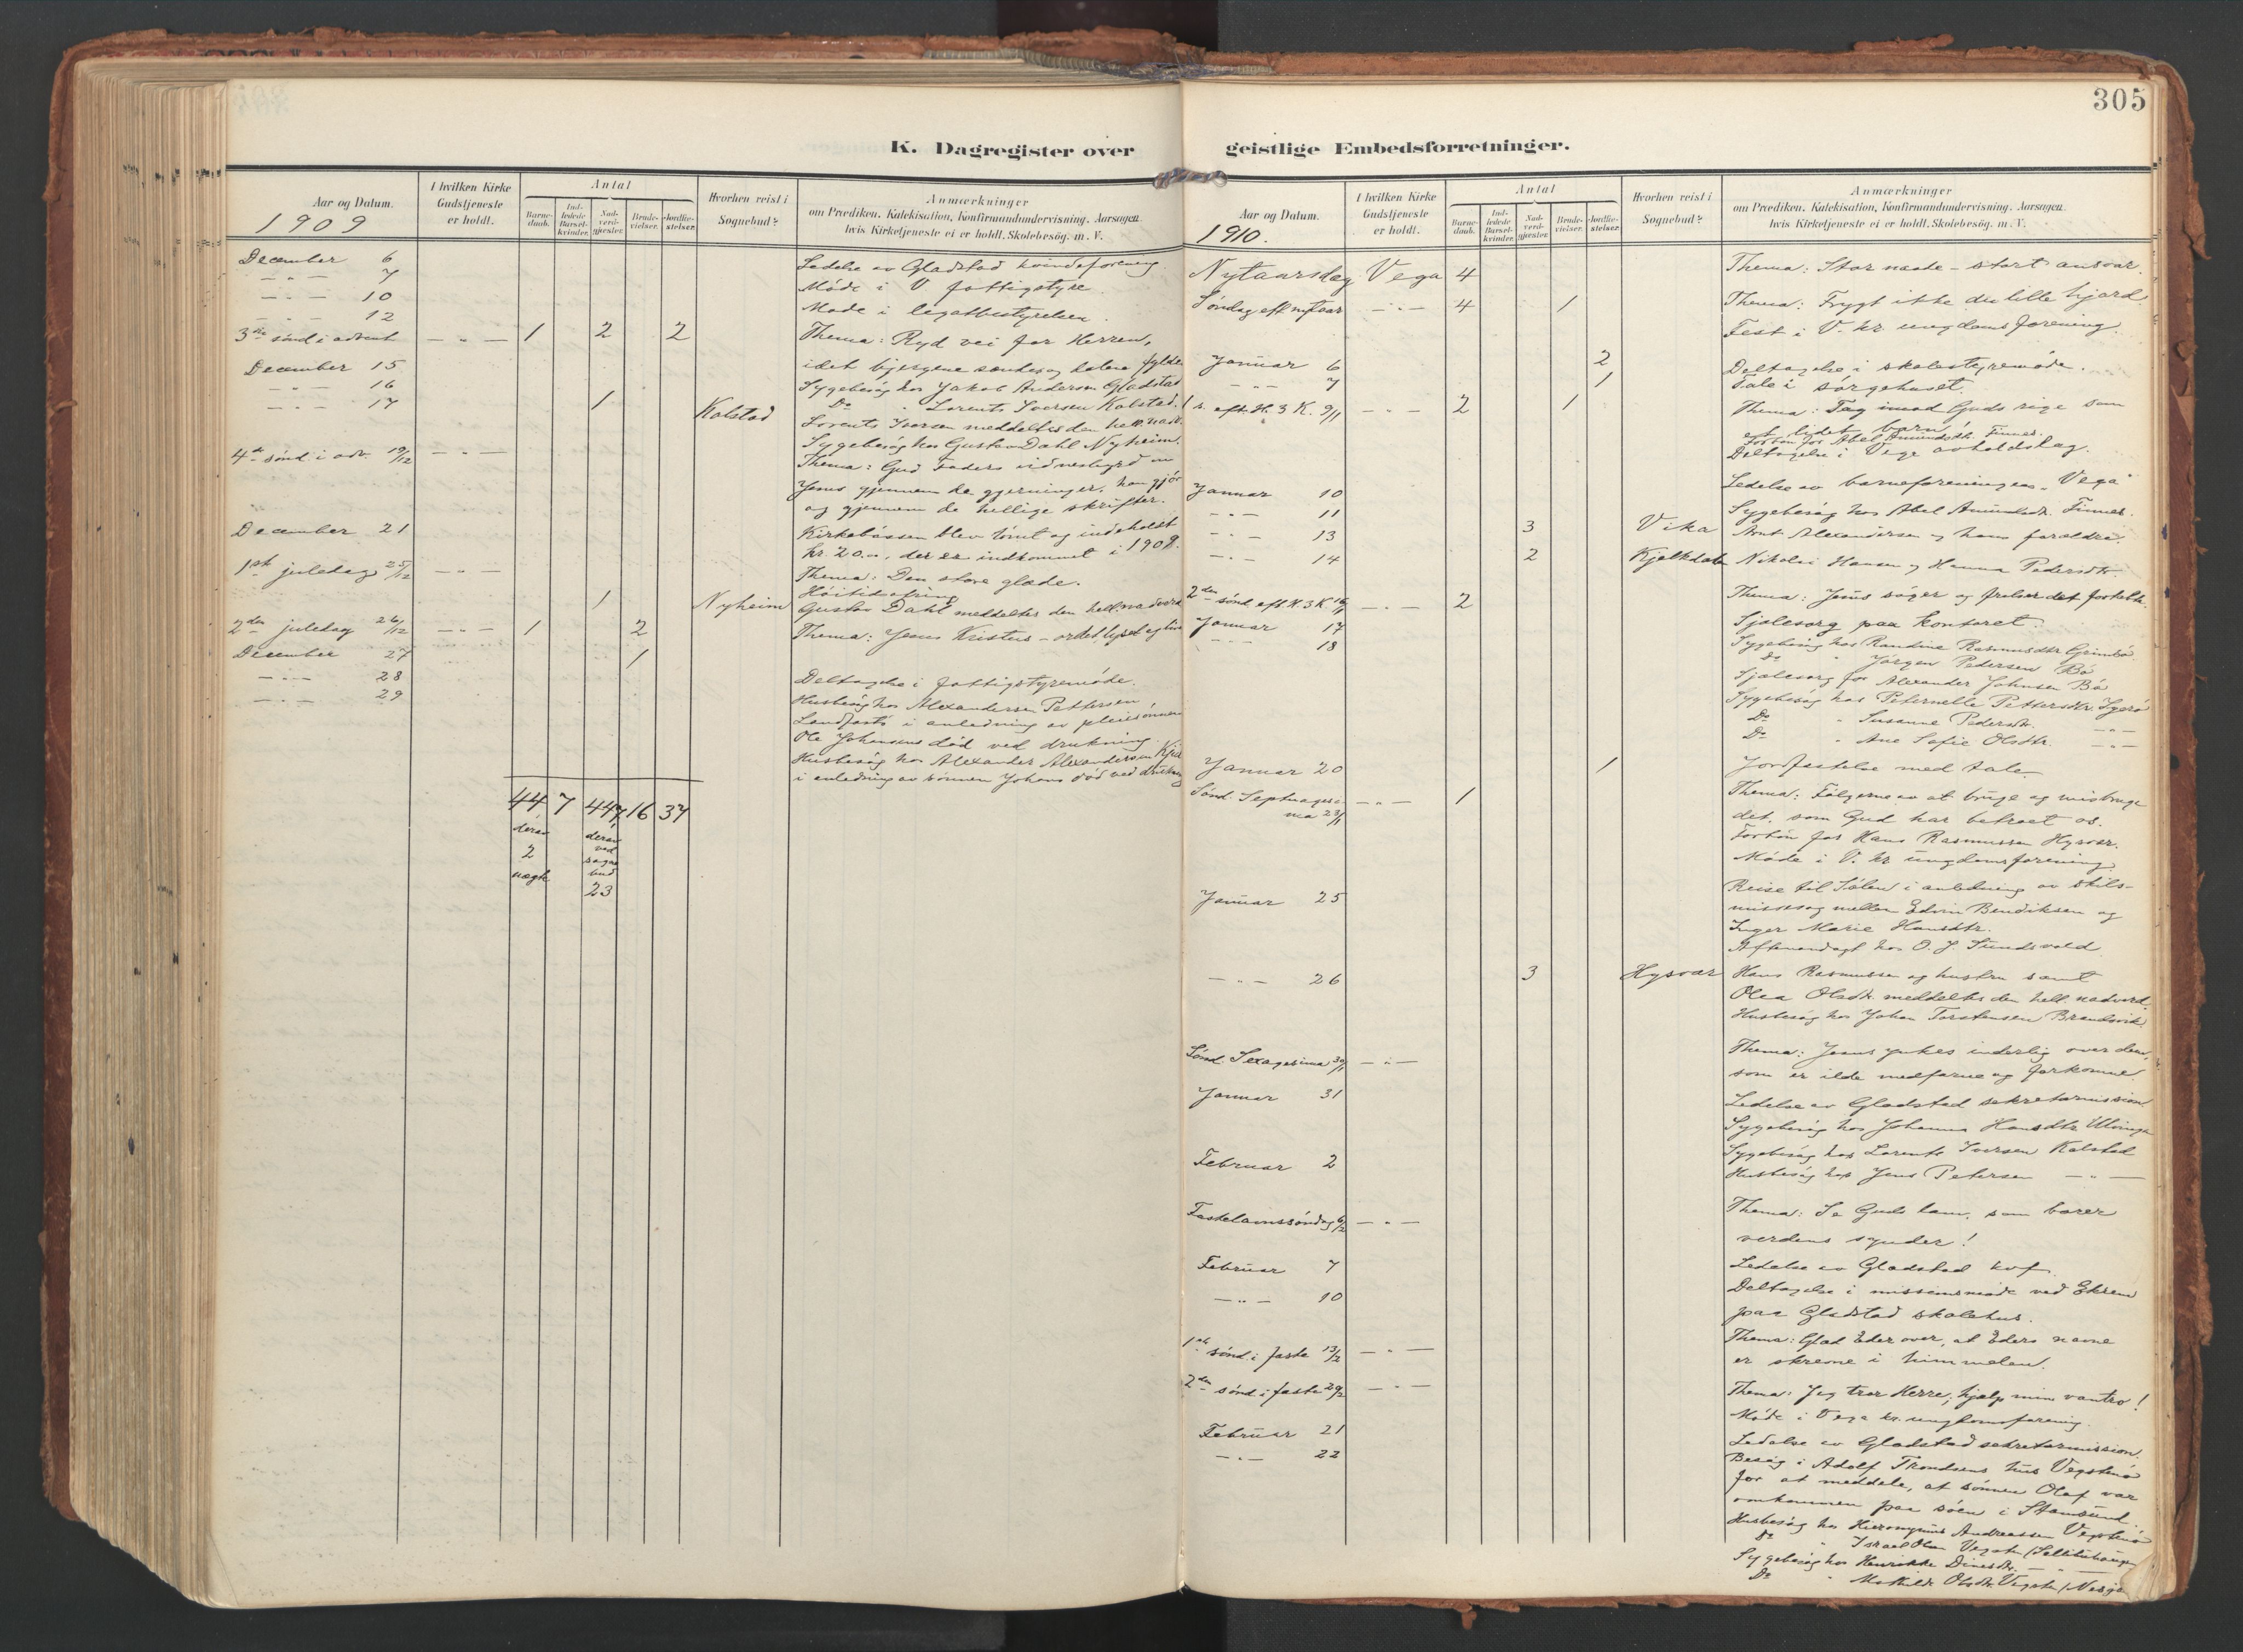 305
K. Dagregister over geistlige Embedsforretninger.
Aar og Datum.
1909
I hvilken Kirke Gudstjeneste er holdt.
Antal
Barnedaab.
Indledede Barselkvinder.
Nadverdgjester.
Brudevielser.
Jordfæstelser.
Hvorhen reist i Sognebud?
Anmærkninger
om Prædiken, Katekisation, Konfirmandundervisning, Aarsagen
hvis Kirketjeneste ei er holdt, Skolebesög, m. V.
December 6 Ledelse av Gladstad kvindeforening.
— " — 7 Möde i V. fattigstyre
— " — 10 Möde i legatbestyrelsen.
— " — 12
3die sönd. i advent — " — 1 2 2 Thema: Ryd vei for Herren,
idet bjergene sænkes og dalene fyldes
December 15 Sygebesög hos Jakob Andersen Gladstad
— " — 16 1 Do " Lorents Iversen Kalstad.
— " — 17 Kalstad Lorents Iversen meddeltes den hell. nadv.
Sygebesög hos Gustav Dahl Nyheim.
4de sönd. i adv. 19/12 — " — Thema: Gud Faders vidnesbyrd om
Jesus gjennem de gjerninger, han gjör
og gjennem de hellige skrifter.
December 21 Kirkebössen blev tömt og indeholdt
kr. 20.00, der er indkommet i 1909.
1ste juledag 25/12 — " — Thema: Den store glæde.
Höitidsofring
1 Nyheim Gustav Dahl meddeltes den hell. nadverd
2den juledag 26/12 — " — 1 2 Thema: Jesus Kristus – ordet, lyset og livet
December 27 1
— " — 28 Deltagelse i fattigstyremöde.
— " — 29 Husbesög hos Alexandersen Pettersen
i anledning av pleiesönnen
Ole Johansens död ved drukning.
Husbesög hos Alexander Alexandersen
i anledning av sönnen Johans död ved drukning
44 7 447 16 37
derav
2
uægte
derav
ved
sognebud
23
Aar og Datum.
1910.
I hvilken Kirke Gudstjeneste er holdt.
Antal
Barnedaab.
Indledede Barselkvinder.
Nadverdgjester.
Brudevielser.
Jordfæstelser.
Hvorhen reist i Sognebud?
Anmærkninger
om Prædiken, Katekisation, Konfirmandundervisning, Aarsagen
hvis Kirketjeneste ei er holdt, Skolebesög, m. V.
Nytaarsdag Vega 4 Thema: Stor naade – stort ansvar.
Söndag eft. nytaar — " — 4 1 Thema: Frygt ikke du lille hjord
Fest i V. kr. ungdomsforening.
Januar 6 2 Deltagelse i skolestyremöde.
— " — 7 1 Tale i sörgehuset.
1 s. eft. H. 3 K. 9/1 — " — 2 1 Thema: Tag imod Guds rige som
et lidet barn!
Forbön for Abel Amundsdtr. Finnes.
Deltagelse i Vega avholdslag.
Januar 10 Ledelse av barneforeningen "Vega"
— " — 11 Sygebesög hos Abel Amundsdtr. Finnes.
— " — 13 3 Vika Arnt Alexandersen og hans forældre
— " — 14 2 Kjelkdalen Nikolai Hansen og Hanna Pedersdtr.
2den sönd. eft. H. 3 K. 16/1 — " — 2 Thema: Jesus söger og frelser det fortabte.
Januar 17 Sjælesorg paa kontoret.
— " — 18 Sygebesög hos Randine Rasmusdtr. Grimsö
Do " Jörgen Pedersen Bö
Sjælesorg for Alexander Johnsen Bö
Sygebesög hos Peternelle Pettersdtr. Igerö
Do " Susanne Pedersdtr. — " —
Do " Ane Sofie Olsdtr. — " —
Januar 20 1 Jordfæstelse med tale
Sönd. Septuagesima 23/1 — " — 1 Thema: Fölgerne av at bruge og misbruge
det, som Gud har betroet os.
Forbön for Hans Rasmussen Hysvær.
Möde i V. kr. ungdomsforening.
Januar 25 Reise til Sölen i anledning av skilsmissesag
mellem Edvin Bendiksen og
Inger Marie Hansdtr.
Aftenandagt hos O. J. Sundsvold
— " — 26 3 Hysvær Hans Rasmussen og hustru samt
Olea Olsdtr. meddeltes den hell. nadverd.
Husbesög hos Johan Torstensen Brandsvik
Sönd. Sexagesima 30/1 — " — Thema: Jesus ynkes inderlig over dem,
som er ilde medfarne og forkomne.
Januar 31 Ledelse av Gladstad sekretærmission
Sygebesög hos Johanna Hansdtr. Ulvingen
Februar 2 Sygebesög hos Lorents Iversen Kalstad
Husbesög hos Jens Petersen — " —
Fastelavnssöndag 6/2 — " — Thema: Se Guds lam, som bærer
verdens synder!
Februar 7 Ledelse av Gladstad kvf.
— " — 10 Deltagelse i missionsmöde ved Ekrem
paa Gladstad skolehus.
1ste sönd. i faste 13/2 — " — Thema: Glæd Eder over, at Eders navne
er skrevne i himmelen.
2den sönd. i faste 20/2 — " — Thema: Jeg tror Herre, hjælp min vantro!
Möde i Vega kr. ungdomsforening.
Februar 21 Ledelse av Gladstad sekretærmission.
— " — 22 Besög i Adolf Trondsens hus Vegstenö
for at meddele, at sönnen Olaf var
omkommen paa söen i Stamsund.
Husbesög hos Hieronymus Andreassen Vegstenö
Do " Israel Olsen Vegsten
Sygebesög hos Henrikke Dinesdtr. — " —
Do " Mathilde Olsdtr. Vegsten